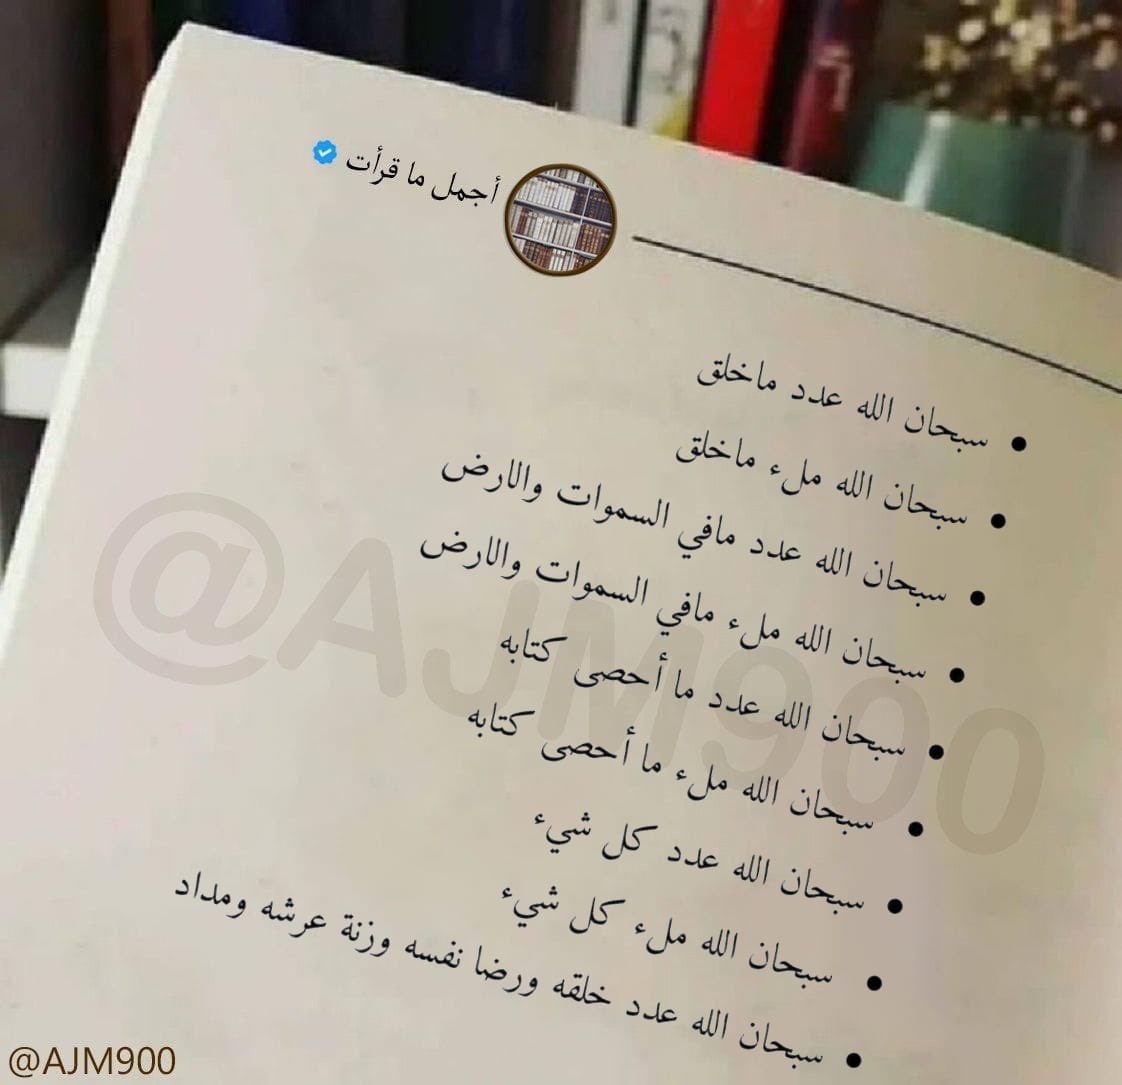 أجمل ما قرأت
• سبحان الله عدد ماخلق
• سبحان الله ملء ماخلق
• سبحان الله عدد مافي السموات والارض
• سبحان الله ملء مافي السموات والارض
• سبحان الله عدد ما أحصى كتابه
• سبحان الله ملء ما أحصى كتابه
• سبحان الله عدد كل شيء
• سبحان الله ملء كل شيء
• سبحان الله عدد خلقه ورضا نفسه وزنة عرشه ومداد
@AJM900
@AJM900